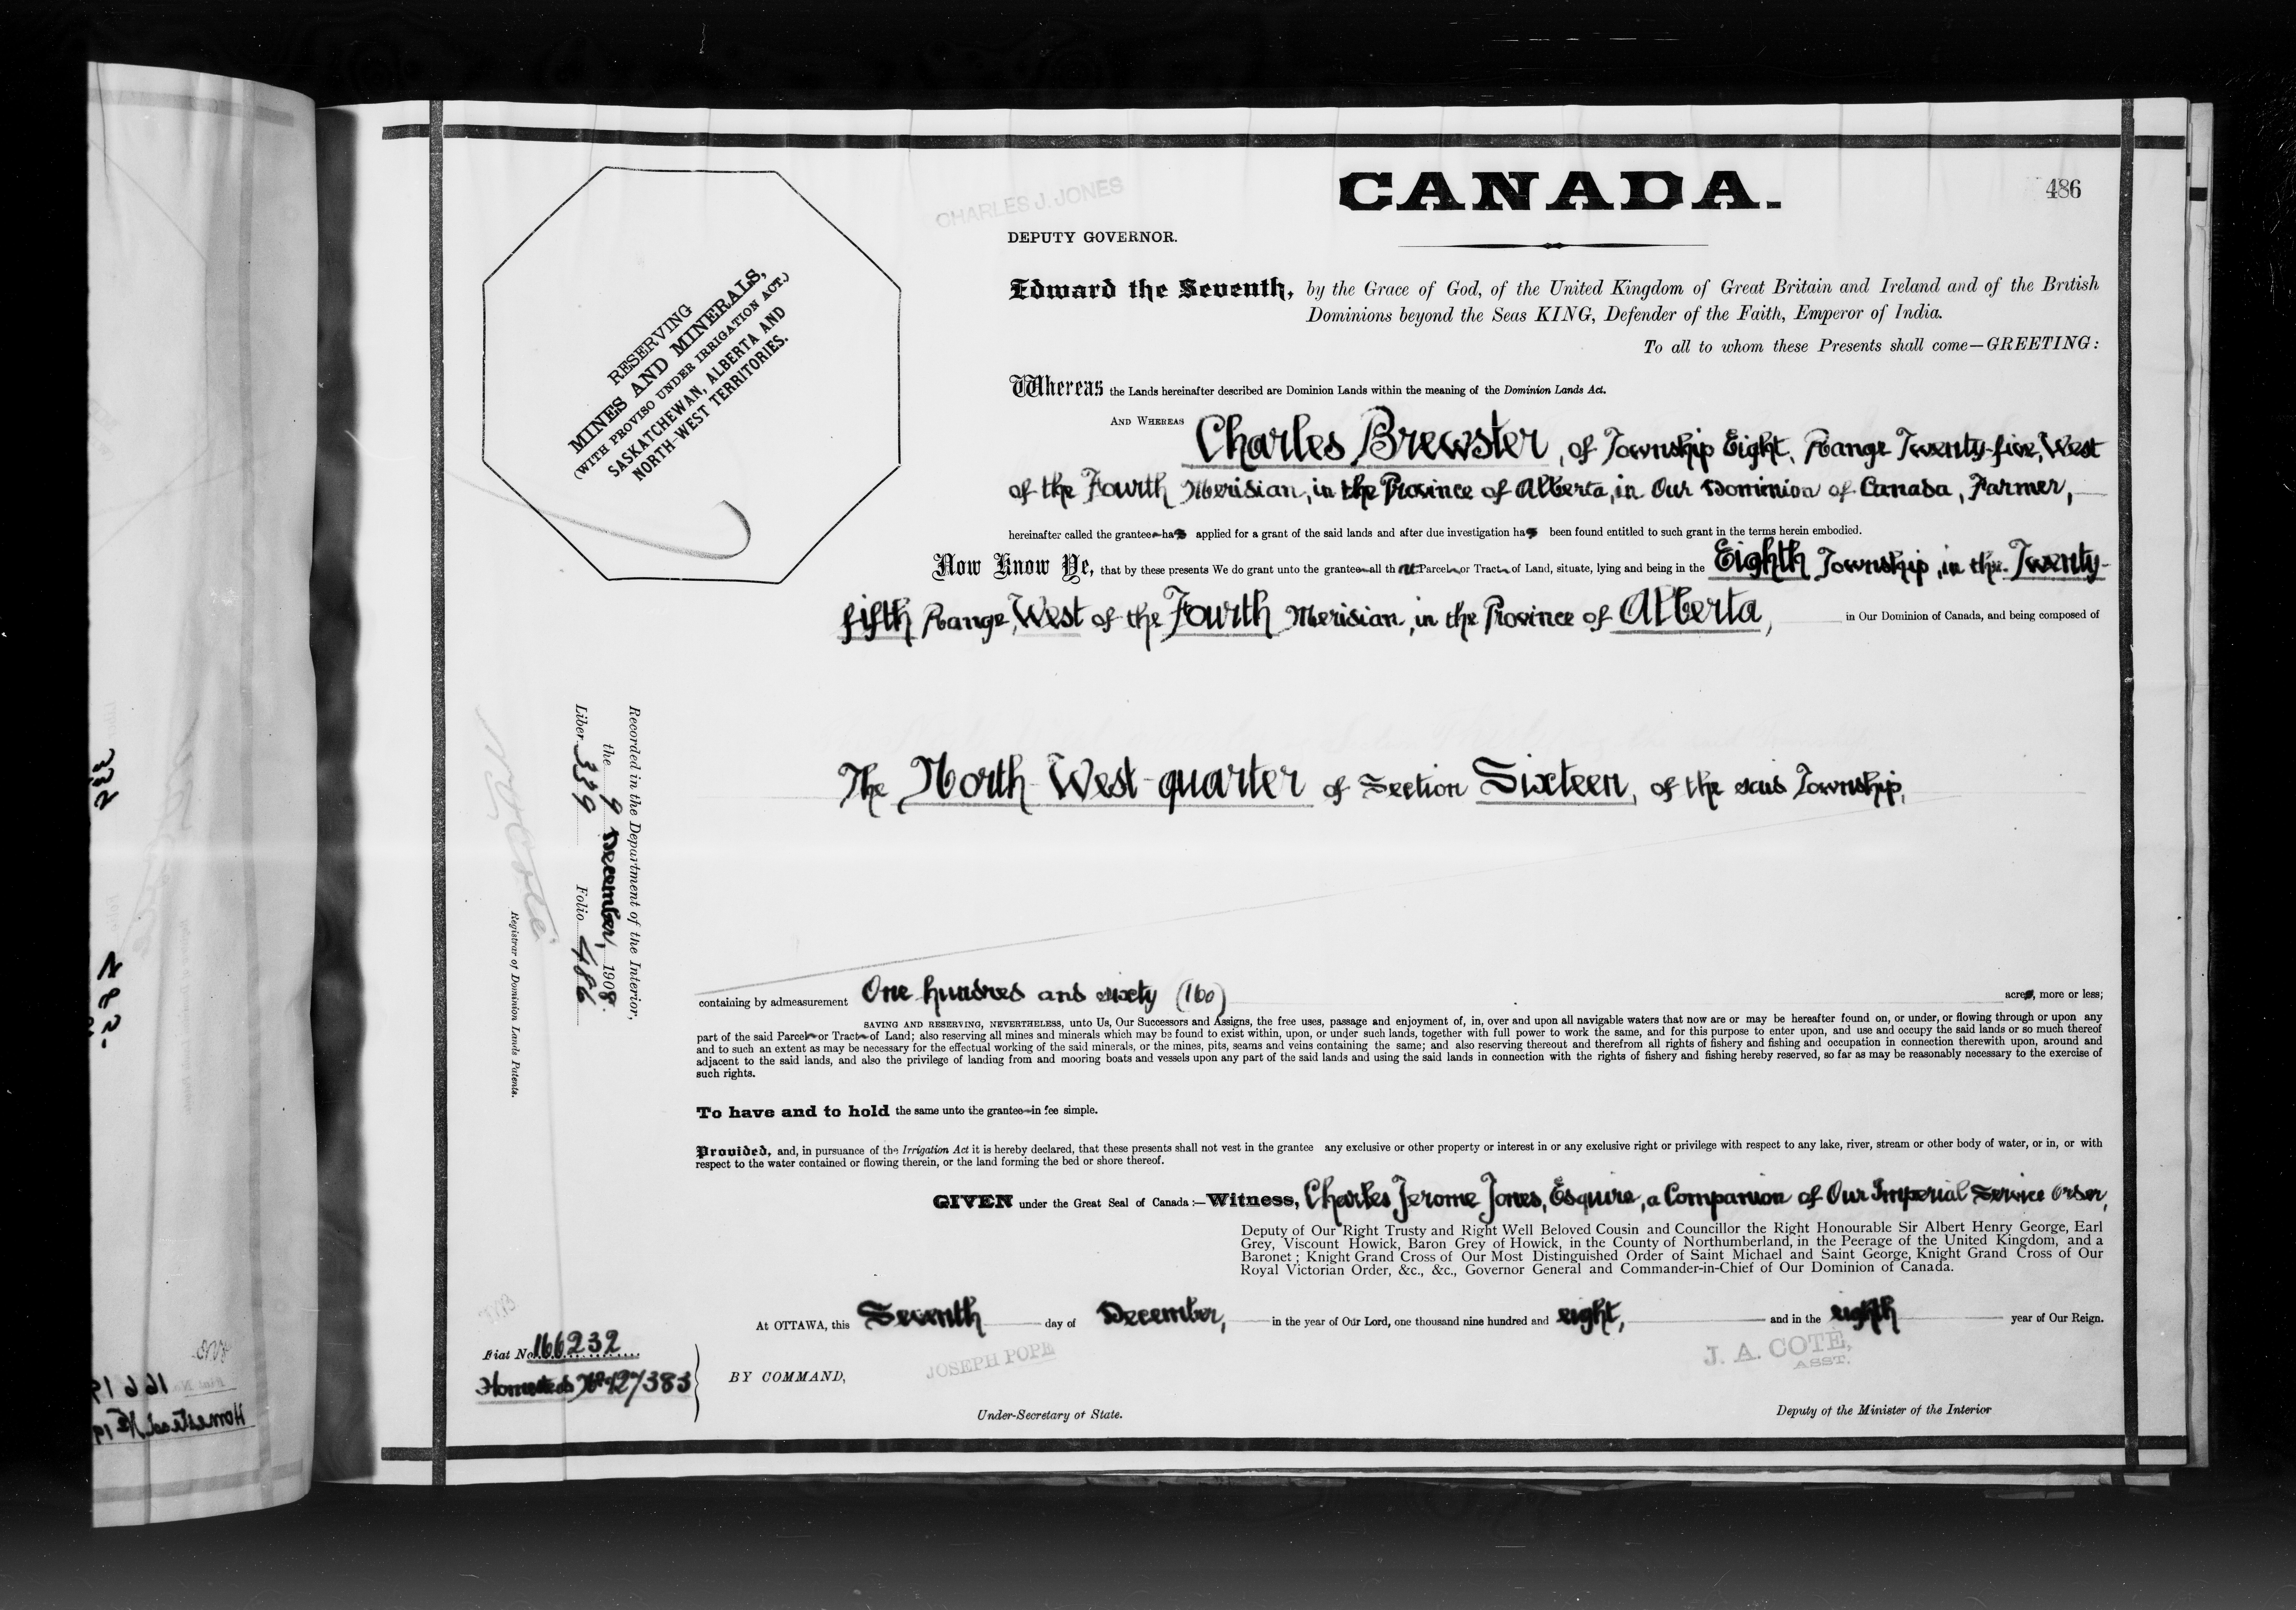 CANADA.
486
CHARLES J. JONES
DEPUTY GOVERNOR.
RESERVING
MINES AND MINERALS,
(WITH PROVISO UNDER IRRIGATION ACT.)
SASKATCHEWAN, ALBERTA AND
NORTH-WEST TERRITORIES.
Edward the Seventh, by the Grace of God, of the United Kingdom of Great Britain and Ireland and of the British
Dominions beyond the Seas KING, Defender of the Faith, Emperor of India.
To all to whom these Presents shall come—GREETING:
Whereas the Lands hereinafter described are Dominion Lands within the meaning of the Dominion Lands Act.
AND WHEREAS Charles Brewster, of Township Eight, Range Twenty-five, West
of the Fourth Meridian, in the Province of Alberta, in Our Dominion of Canada, Farmer,
hereinafter called the grantee has applied for a grant of the said lands and after due investigation has been found entitled to such grant in the terms herein embodied.
Now Know Ye, that by these presents We do grant unto the grantee all that Parcel or Tract of Land, situate, lying and being in the Eighth Township, in the Twenty-
fifth Range, West of the Fourth Meridian, in the Province of Alberta, in Our Dominion of Canada, and being composed of
The North-West-quarter of Section Sixteen, of the said Township,
Recorded in the Department of the Interior,
the 9 December, 1908.
Liber 339 Folio 486
N O Coté
Registrar of Dominion Lands Patents.
containing by admeasurement One hundred and sixty (160) acres, more or less;
SAVING AND RESERVING, NEVERTHELESS, unto Us, Our Successors and Assigns, the free uses, passage and enjoyment of, in, over and upon all navigable waters that now are or may be hereafter found on, or under, or flowing through or upon any
part of the said Parcel or Tract of Land; also reserving all mines and minerals which may be found to exist within, upon, or under such lands, together with full power to work the same, and for this purpose to enter upon, and use and occupy the said lands or so much thereof
and to such an extent as may be necessary for the effectual working of the said minerals, or the mines, pits, seams and veins containing the same; and also reserving thereout and therefrom all rights of fishery and fishing and occupation in connection therewith upon, around and
adjacent to the said lands, and also the privilege of landing from and mooring boats and vessels upon any part of the said lands and using the said lands in connection with the rights of fishery and fishing hereby reserved, so far as may be reasonably necessary to the exercise of
such rights.
To have and to hold the same unto the grantee in fee simple.
Provided, and, in pursuance of the Irrigation Act it is hereby declared, that these presents shall not vest in the grantee any exclusive or other property or interest in or any exclusive right or privilege with respect to any lake, river, stream or other body of water, or in, or with
respect to the water contained or flowing therein, or the land forming the bed or shore thereof.
GIVEN under the Great Seal of Canada:—Witness, Charles Jerome Jones, Esquire, a Companion of Our Imperial Service Order,
Deputy of Our Right Trusty and Right Well Beloved Cousin and Councillor the Right Honourable Sir Albert Henry George, Earl
Grey, Viscount Howick, Baron Grey of Howick, in the County of Northumberland, in the Peerage of the United Kingdom, and a
Baronet; Knight Grand Cross of Our Most Distinguished Order of Saint Michael and Saint George, Knight Grand Cross of Our
Royal Victorian Order, &c., &c., Governor General and Commander-in-Chief of Our Dominion of Canada.
At OTTAWA, this Seventh day of December, in the year of Our Lord, one thousand nine hundred and eight, and in the eighth year of Our Reign.
Fiat No. 166232
Homestead No
BY COMMAND,
JOSEPH POPE
Under-Secretary of State.
J. A. COTE,
ASST.
Deputy of the Minister of the Interior